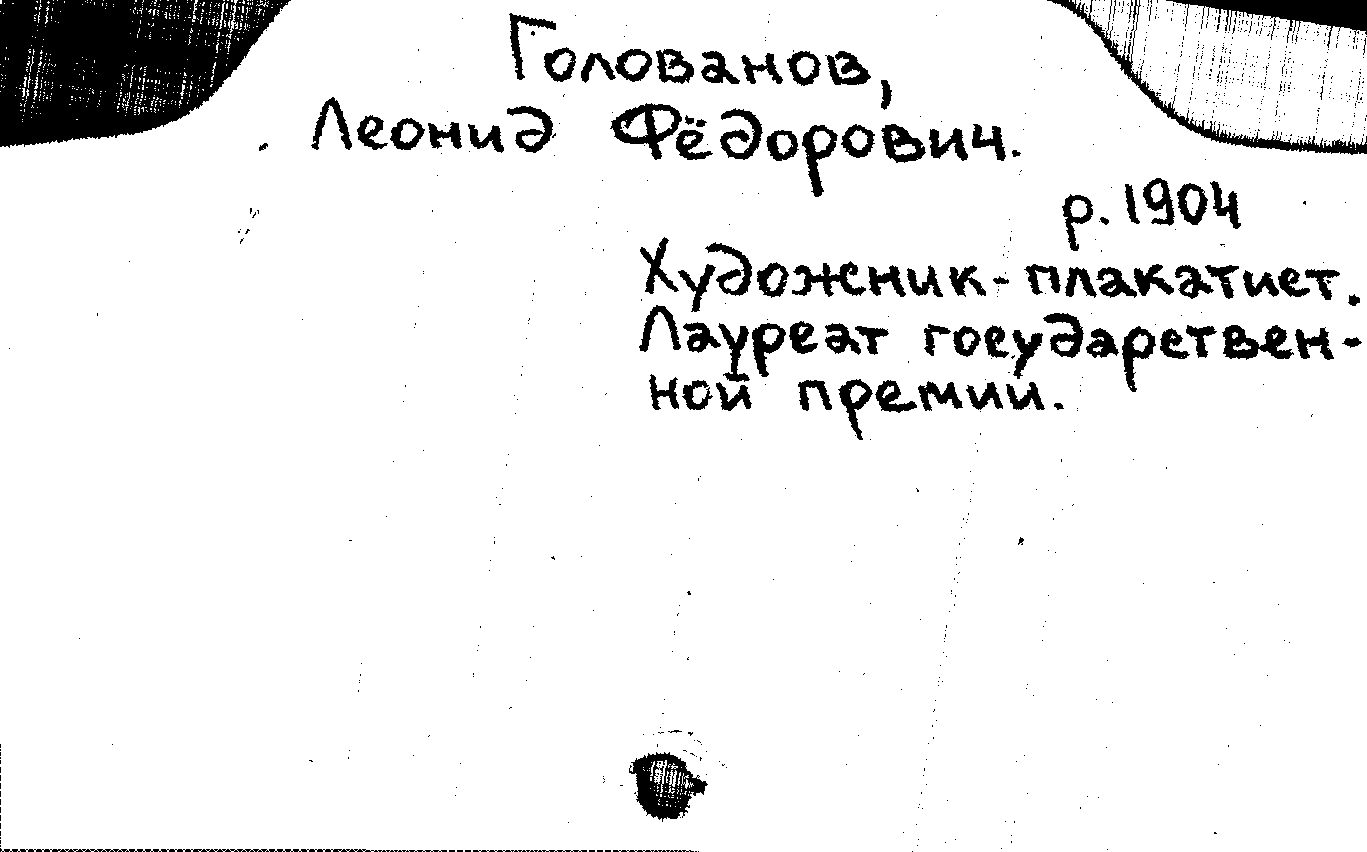 Голованов,
Леонид Фёдорович.
р. 1904
Художник-плакатист.
Лауреат государствен-
ной премии.